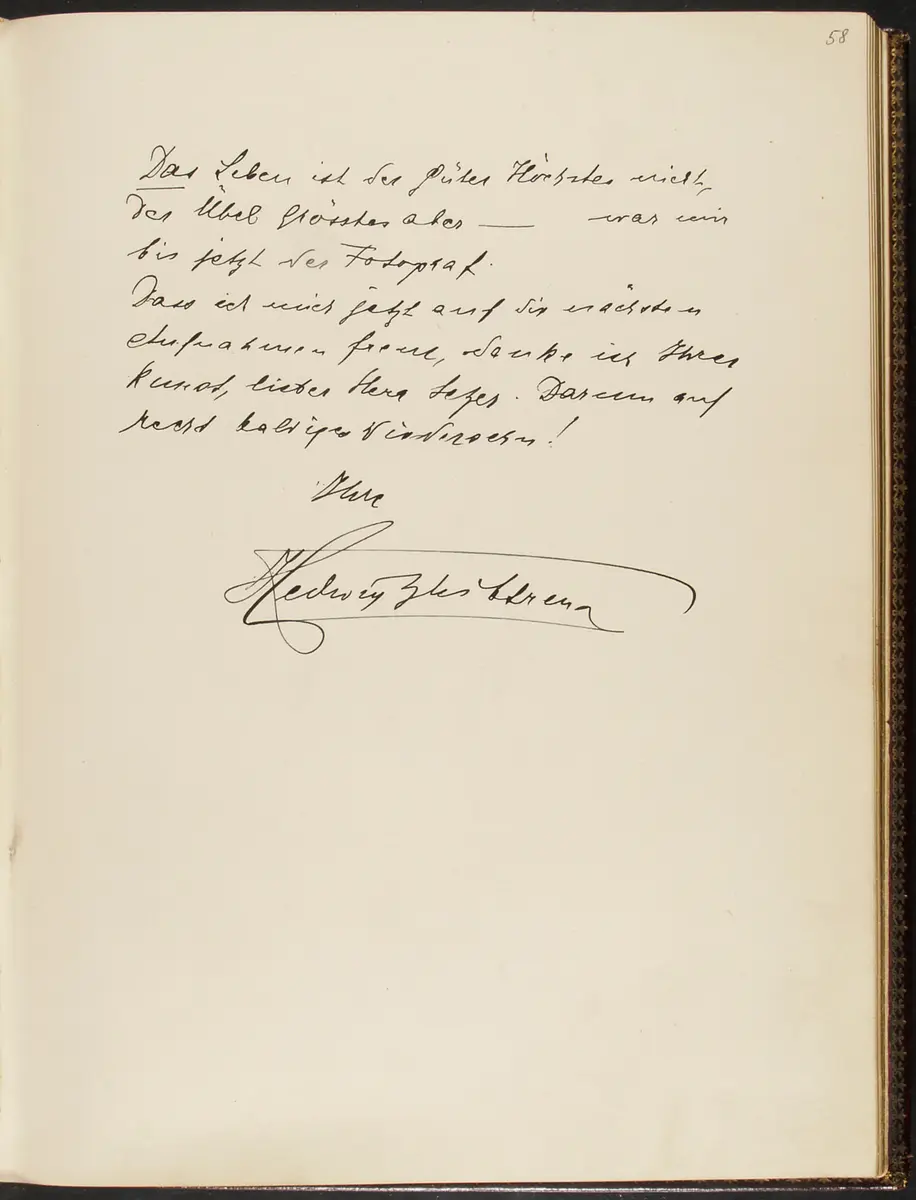 58
Das Leben ist der Güter Höchstes nicht,
der Übel Grösstes aber — war mir
bis jetzt der Fotograf.
Dass ich mich jetzt auf die nächsten
Aufnahmen freue, danke ich Ihrer
Kunst, lieber Herr Setzer. Darum auf
recht baldiges Wiedersehn!
Ihre
Hedwig Bleibtreu